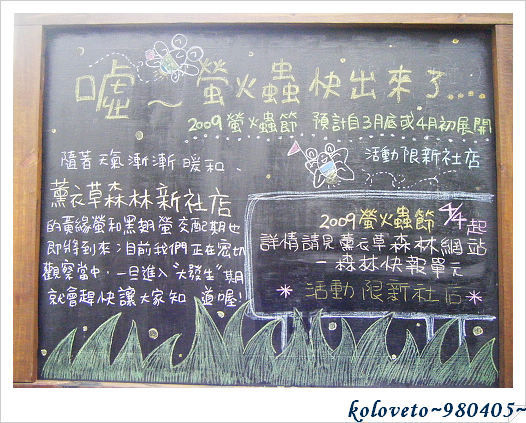 噓～螢火蟲快出來了....
2009螢火蟲節 預計自3月底或4月初展開
活動限新社店
隨著天氣漸漸暖和、
薰衣草森林新社店
的黃緣螢和黑翅螢交配期也
即將到來；目前我們正在密切
觀察當中，一旦進入"大發生"期
就會趕快讓大家知道喔！
2009螢火蟲節 4/4起
詳情請見薰衣草森林網站
－森林快報單元
＊活動限新社店＊
koloveto~980405~